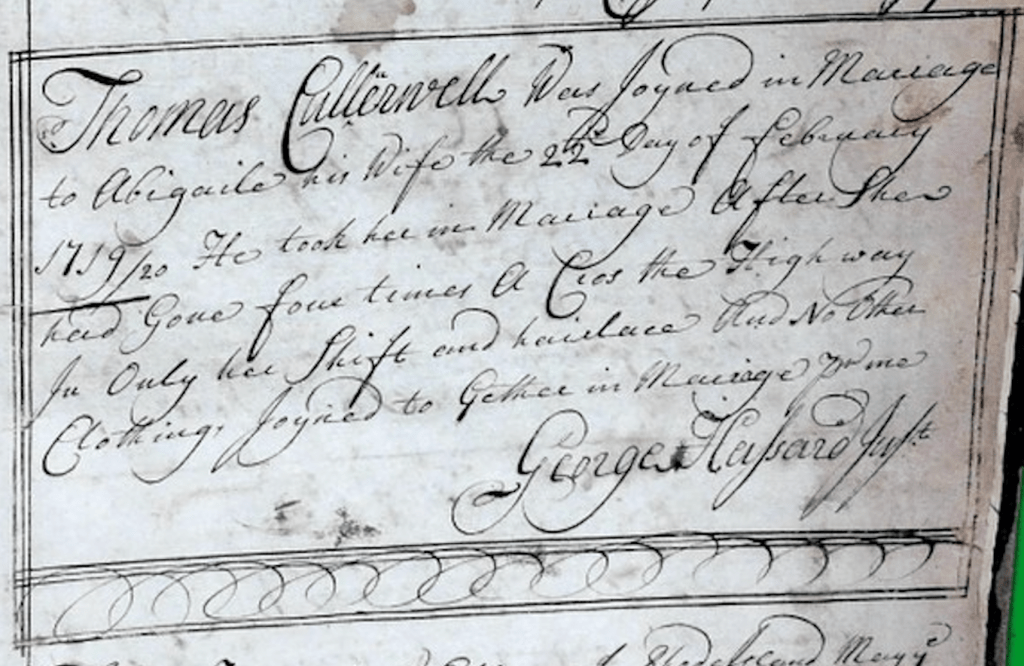 Thomas Cullerwell Was Joyned in Mariage
to Abigaile his Wife the 22th Day of February
1719/20 He took her in Mariage After Shee
had Gone four times A Cros the High way
In Only her Shift and hairlace And No Other
Clothing. Joyned to Gether in Mariage pr me
George Hassard Just